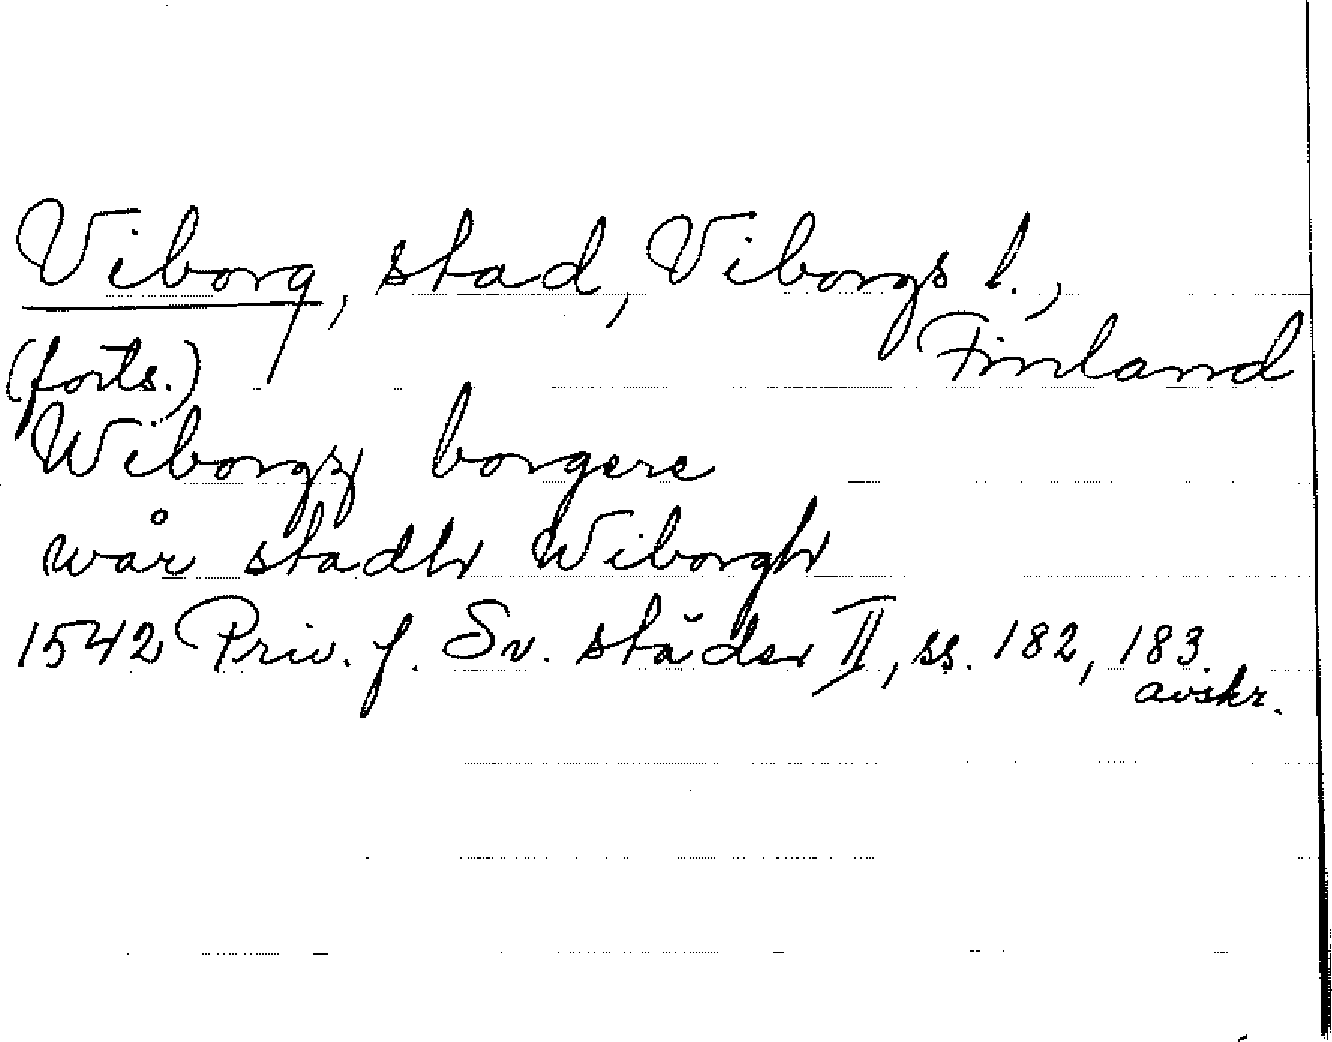 Viborg, stad, Viborgs l.,
Finland
(forts.)
Wiborgz borgere
wår stadh Wiborgh
1542 Priv. f. Sv. städer II, ss. 182, 183.
avskr.